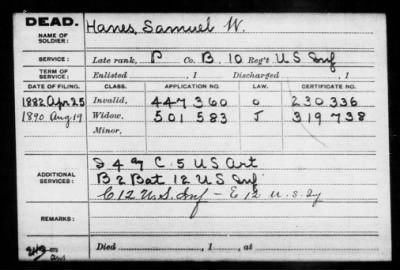 DEAD.
NAME OF SOLDIER: Hanes, Samuel W.
SERVICE: Late rank, P Co. B. 10 Reg't U S Inf
TERM OF SERVICE: Enlisted , 1 Discharged , 1
DATE OF FILING. CLASS. APPLICATION NO. LAW. CERTIFICATE NO.
1882 Apr 25 Invalid, 447360 230336
1890 Aug 19 Widow, 501583 319738
Minor,
ADDITIONAL SERVICES: C 5 US Art
B 2 Bat 12 U S Inf
C. 12 U.S. Inf – E 12 U.S.
REMARKS:
Died , 1 , at